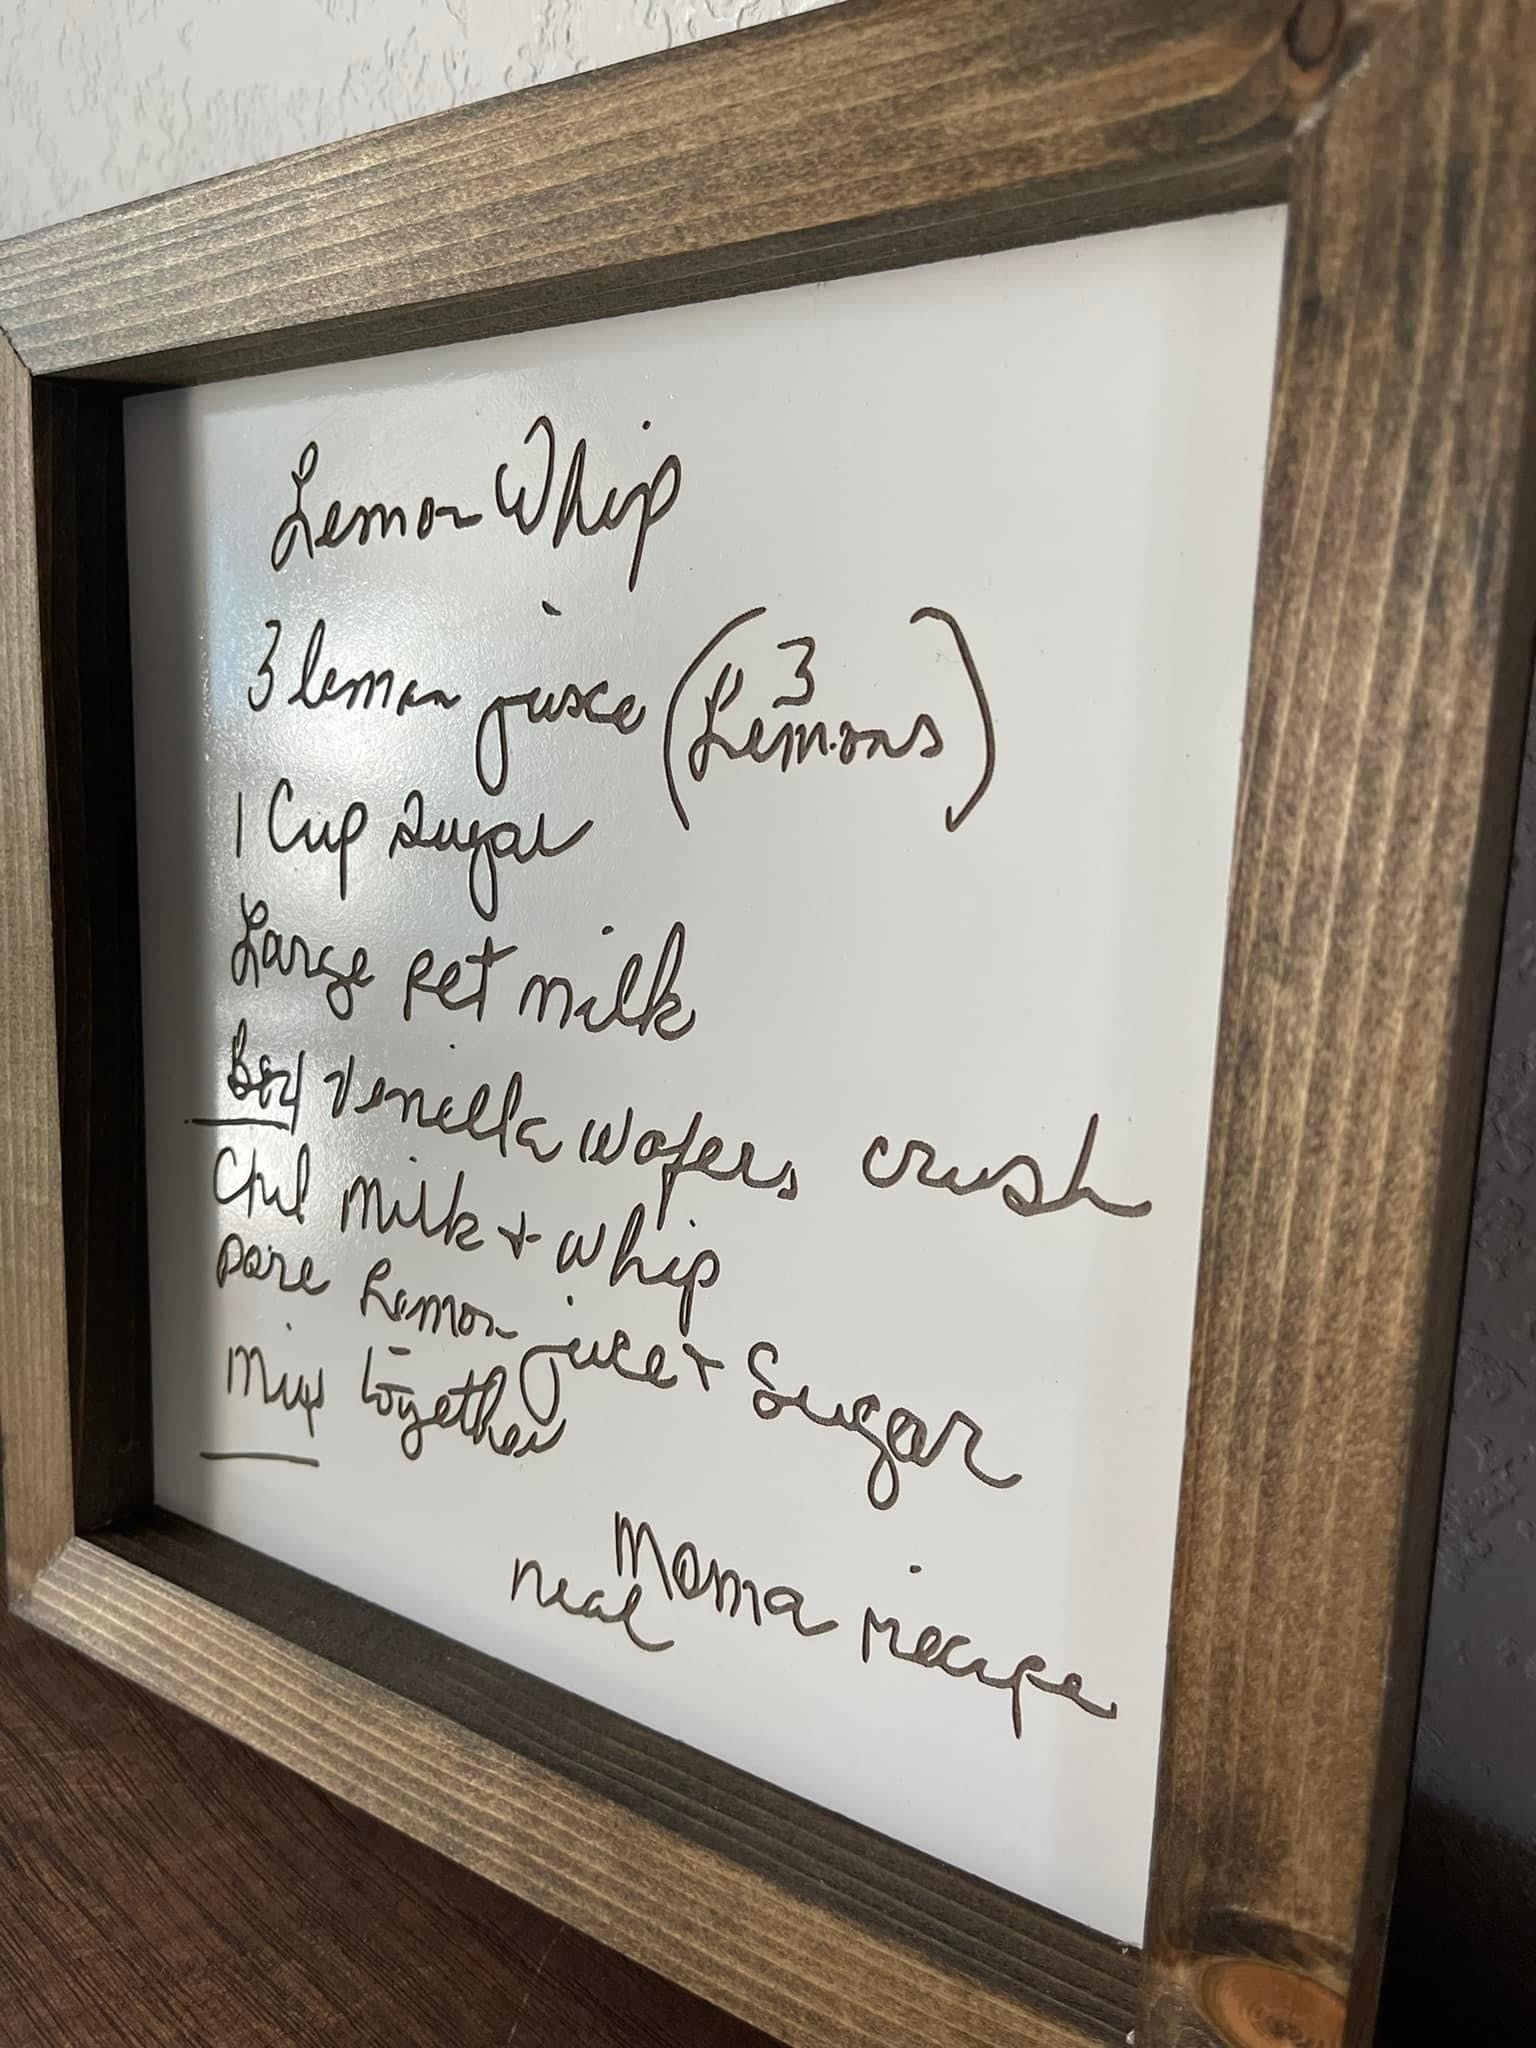 Lemon Whip
3 lemon juice (3 Lemons)
1 Cup sugar
Large pet milk
Box Venilla wafers crush
Chil milk + whip
pore Lemon juice + Sugar
Mix together
Moma recipe
neal